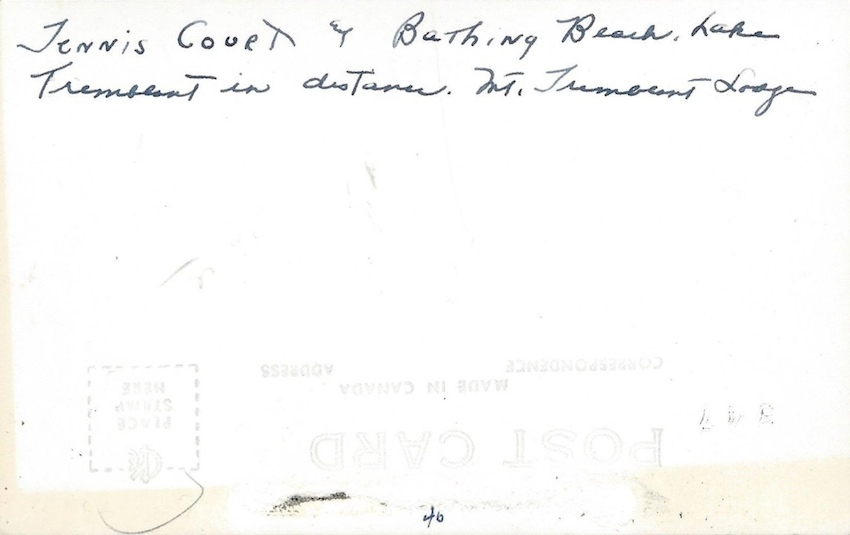 Tennis Court & Bathing Beach. Lake
Tremblant in distance. Mt. Tremblant Lodge
CORRESPONDENCE
ADDRESS
MADE IN CANADA
PLACE
STAMP
HERE
POST CARD